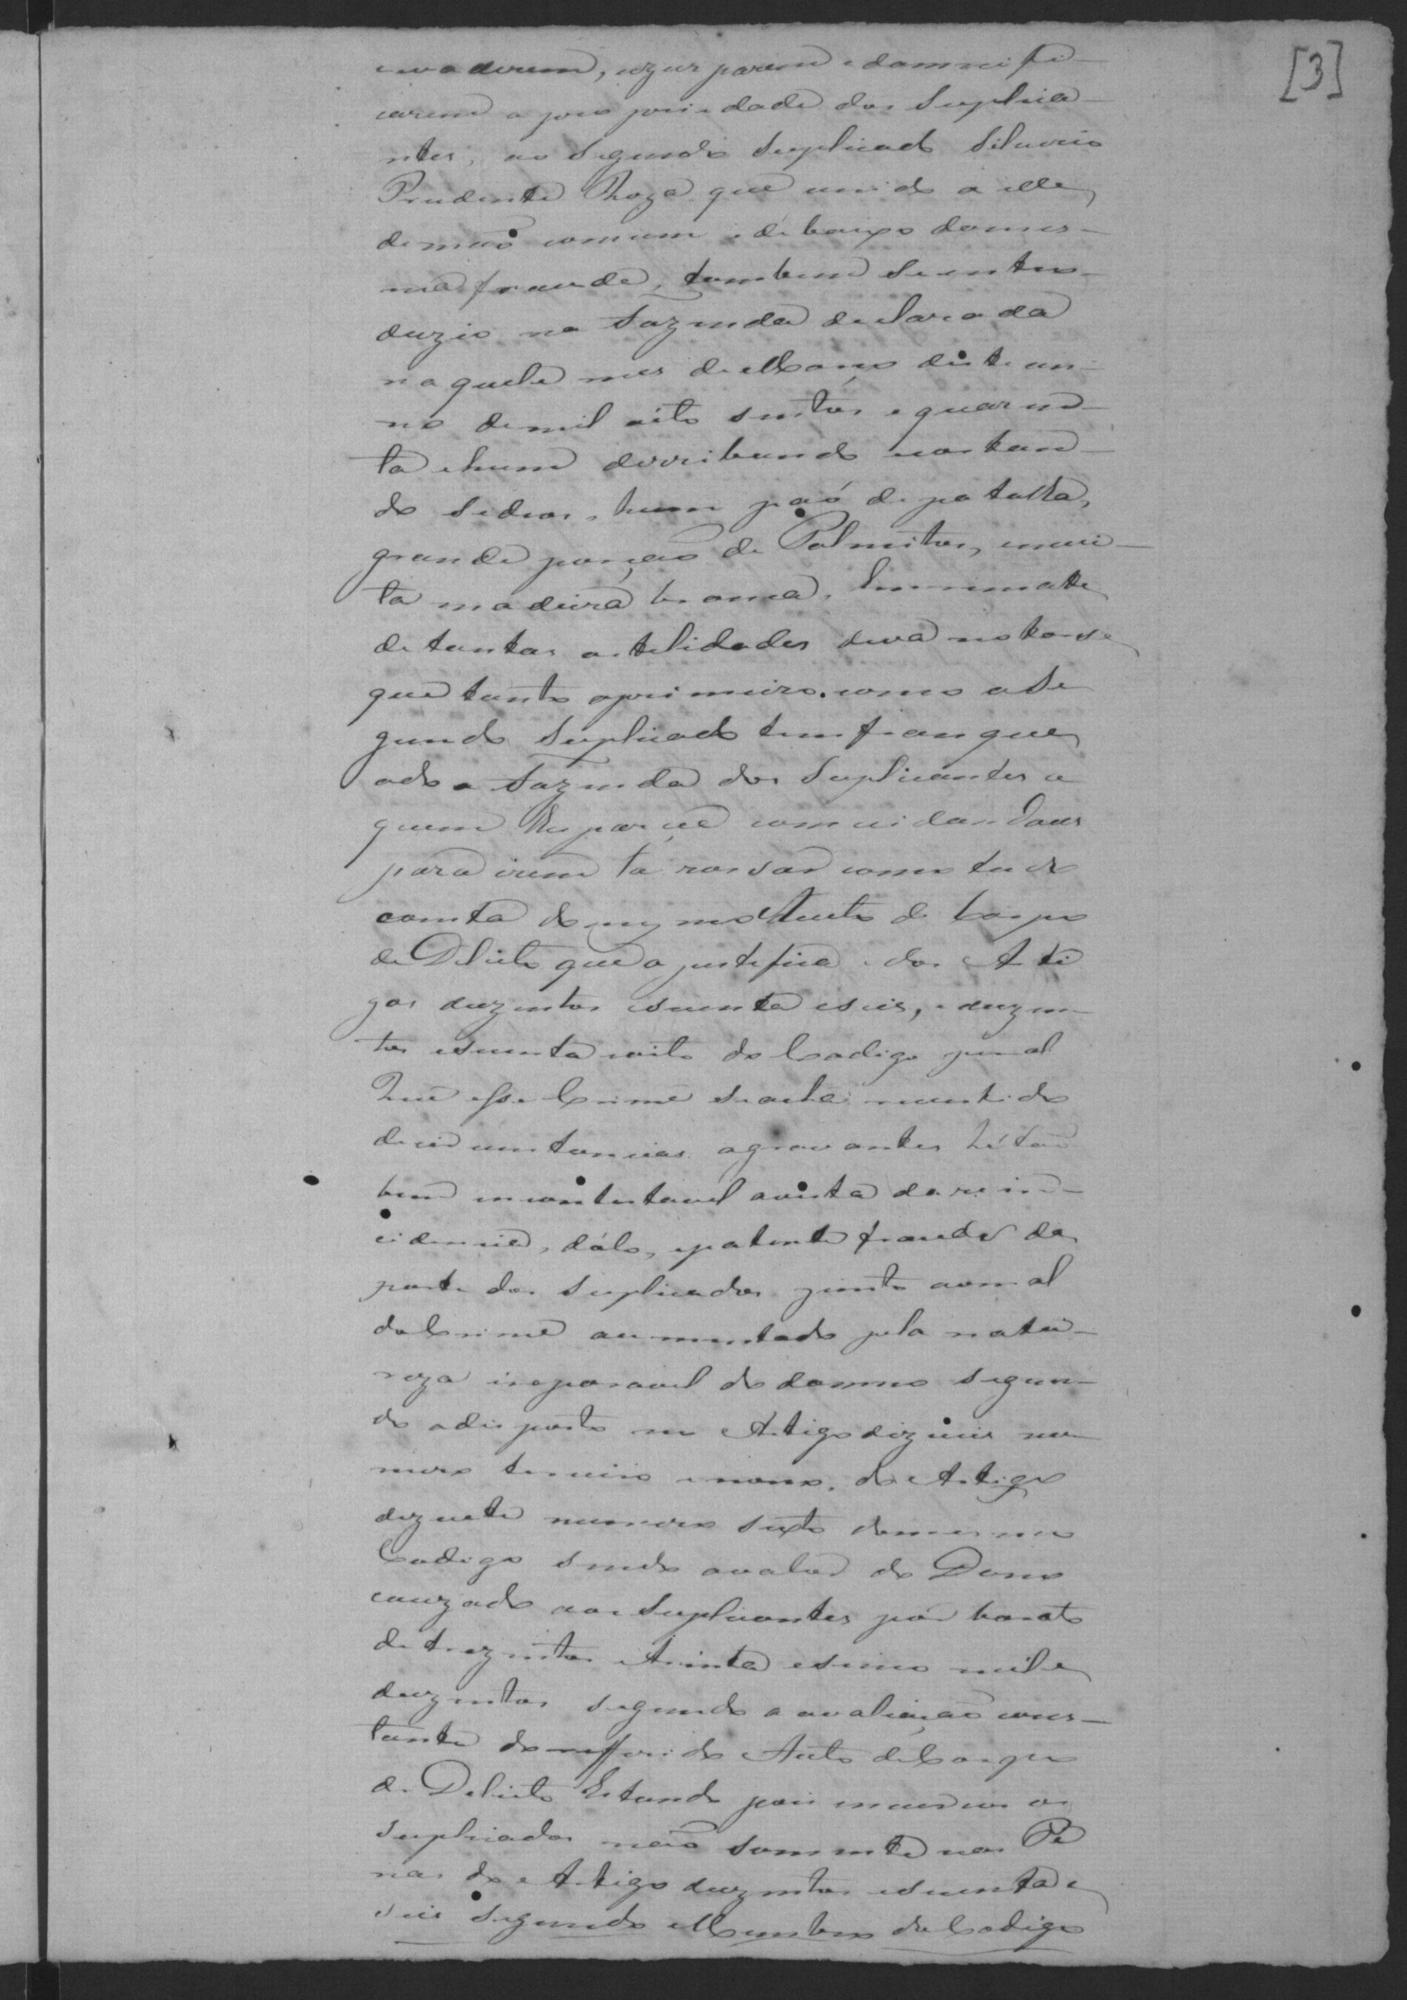 [3]
envaderem, uzurparem e damnefi-
carem a propriedade dos Suplica-
ntes, ao segundo Suplicado Silverio
Prudente Roza que unido a elle,
de maõ comum e debaixo da mes-
ma fraude, tambem se entro-
duzio na Fazenda declarada
naquele mes de Março deste an-
no de mil oito sentos e quaren-
ta e hum derribando e cortan-
do sedros, hum paó de patalla,
grande porçaõ de Palmitos, e mui-
ta madeira branca. Em remate
de tantas ostelidades deva notarse
que tanto o primeiro, como o Se
gundo Suplicado tem franque
ado a Fazenda dos Suplicantes a
quem lhes parece comvidando aos
para irem lá rossar como tudo
consta do mesmo Auto de Corpo
de Delicto que o justefica e dos Arti
gos duzentos e secenta e seis, e duzen-
tos e secenta e oito do Codigo penal
Que esse Crime se acha revestido
de circumstancias agravantes hé tam
bem incontestavel avista da rein-
cidencia, dólo, e patente fraude da
parte dos Suplicados junto ao mal
do Crime aumentado pela natu-
reza ireparavel do damno segun-
do o disposto no Artigo dizeceis nu-
mero terceiro e nono, do Artigo
dizecete numero sexto do mesmo
Codigo sendo o valor do Dano
cauzado aos Suplicantes por barato
de trezentos e trinta e sinco mil e
duzentos segundo a avaliaçaõ cons-
tante do refferido Auto de Corpo
de Delicto Estando pois incursos os
Suplicados naõ somente nas Pe
nas do Artigo duzentos e secenta e
seis segundo Membro do Codigo